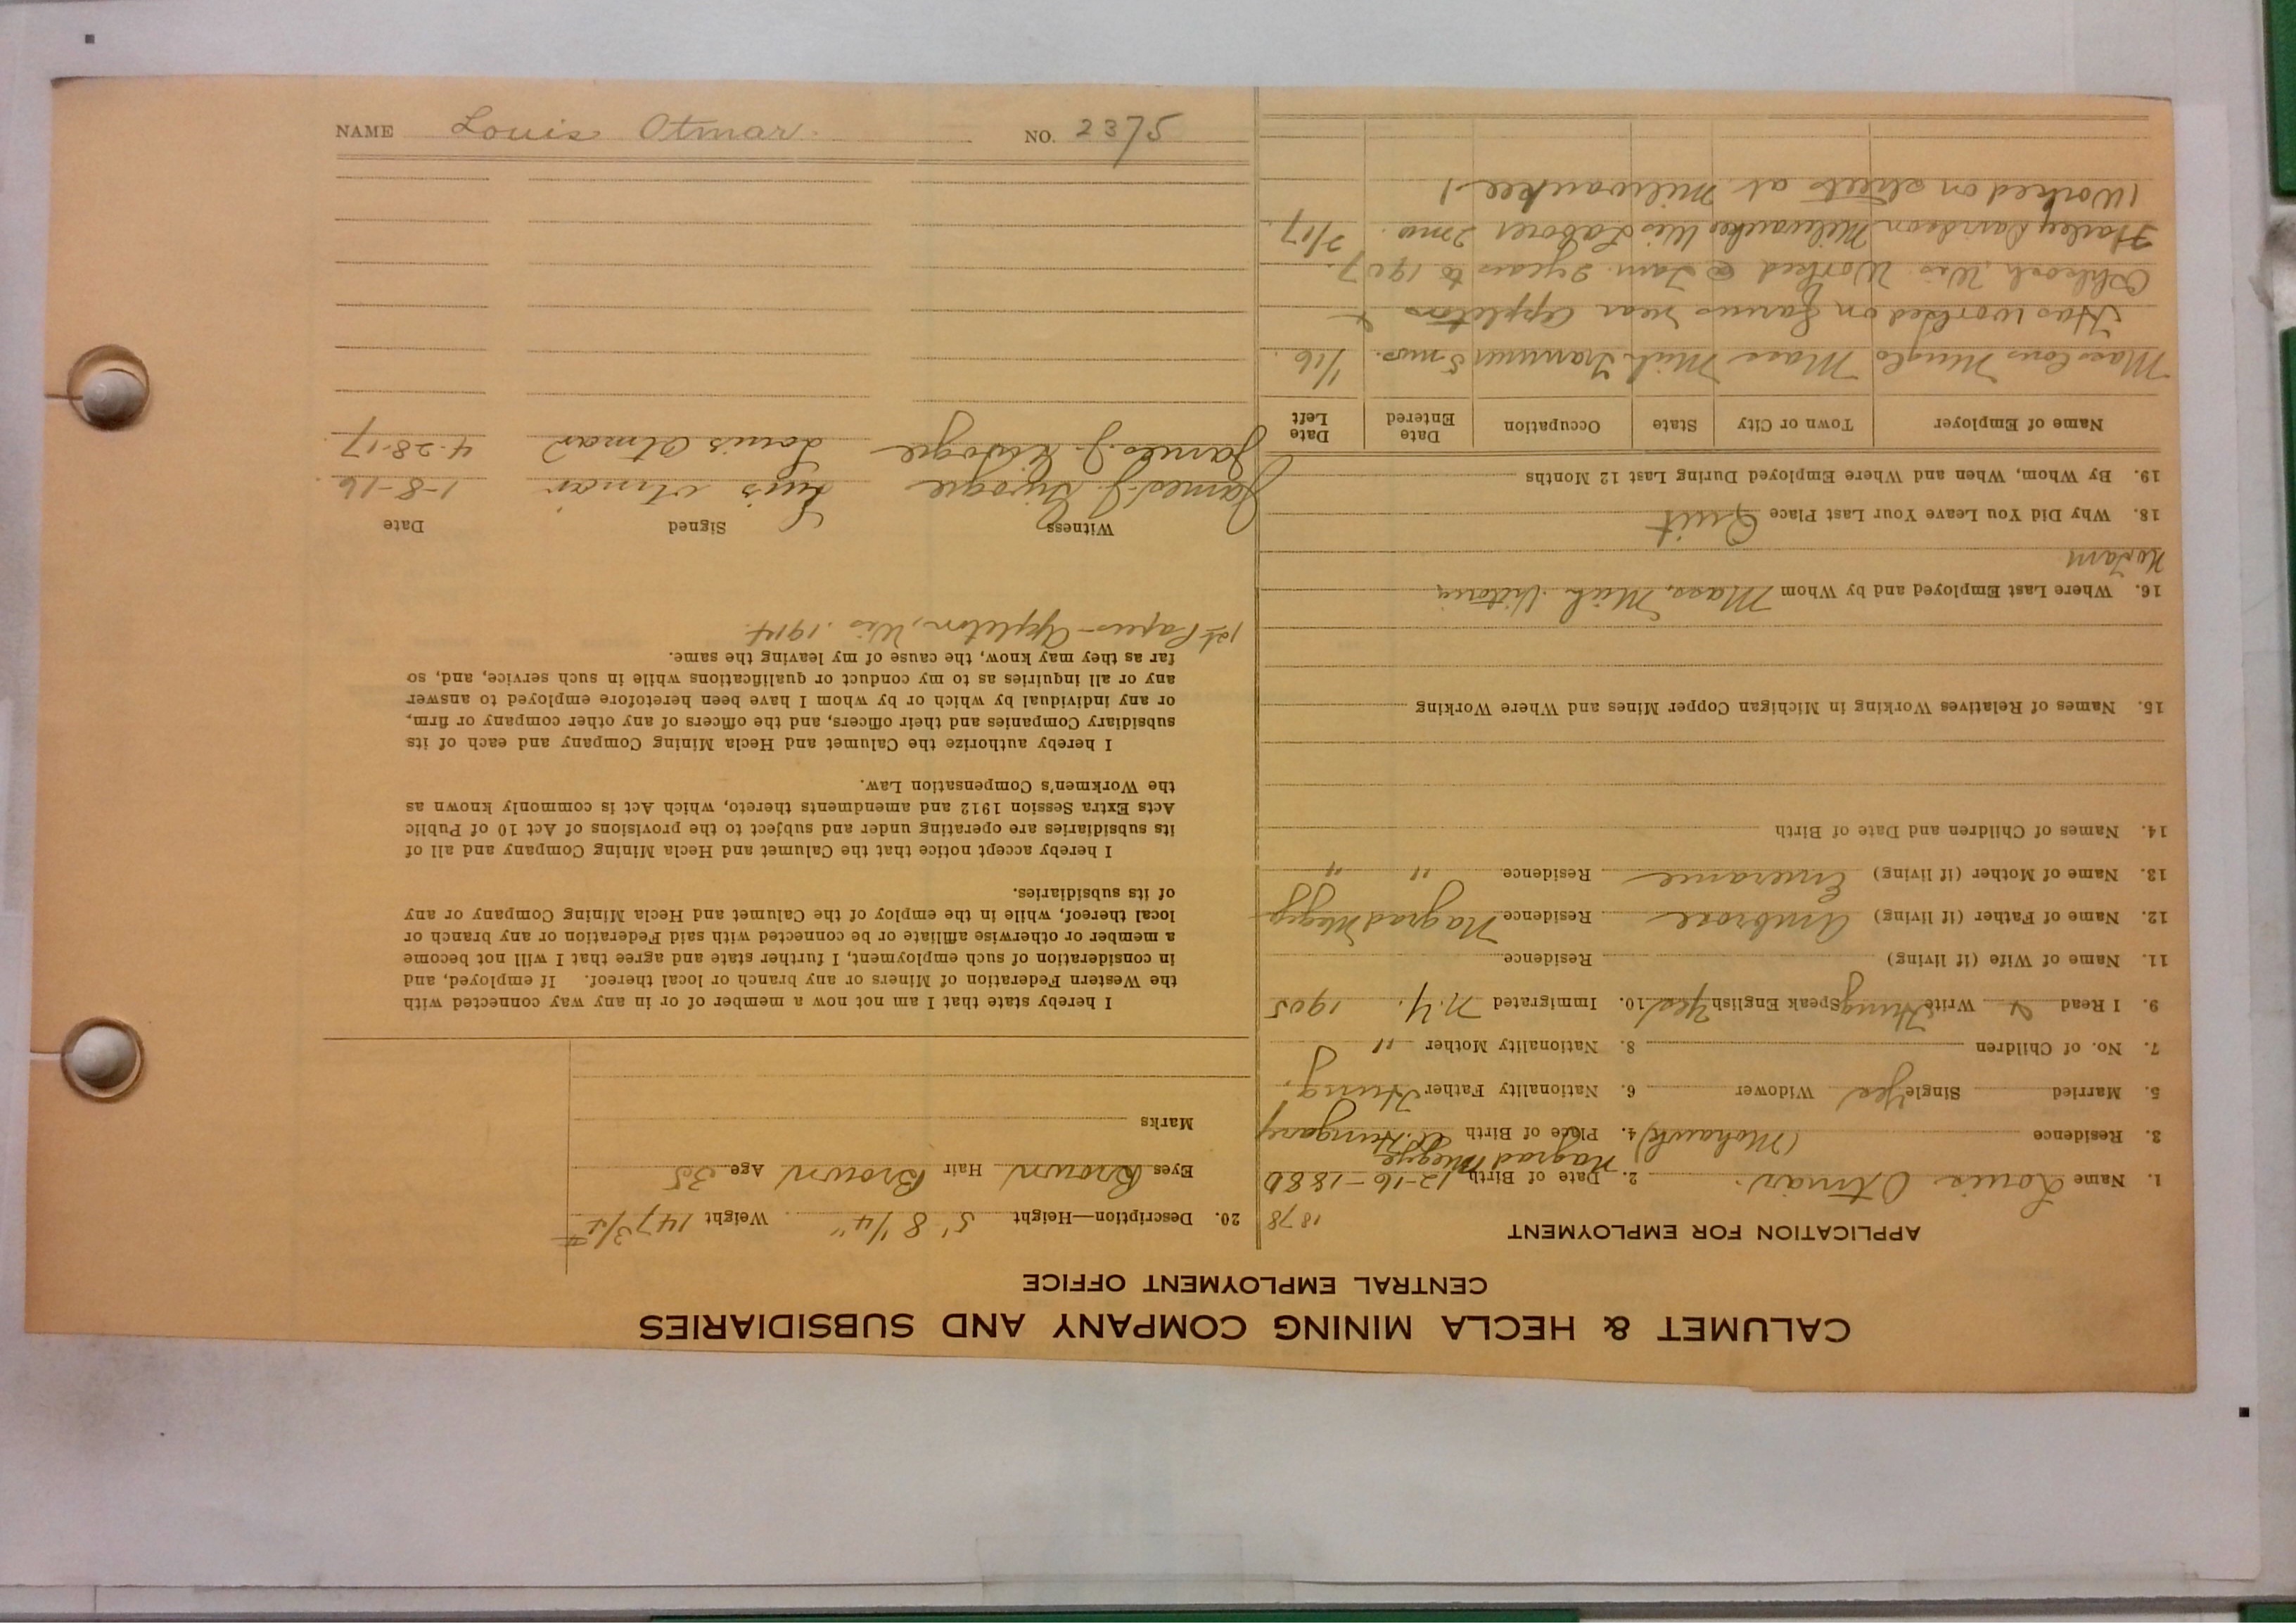 CALUMET & HECLA MINING COMPANY AND SUBSIDIARIES
CENTRAL EMPLOYMENT OFFICE
APPLICATION FOR EMPLOYMENT
1878
1. Name Louis Otmar. 2. Date of Birth 12-16-1880
Nagrad Megye
3. Residence (Mohawk) 4. Place of Birth Hungary
5. Married Single Yes Widower 6. Nationality Father Hung.
7. No. of Children 8. Nationality Mother "
9. I Read & Write Hung Speak English Yes 10. Immigrated N.Y. 1905
11. Name of Wife (if living) Residence
12. Name of Father (if living) Ambrose Residence Nagrad Megye
13. Name of Mother (if living) Residence " "
14. Names of Children and Date of Birth
15. Names of Relatives Working in Michigan Copper Mines and Where Working
16. Where Last Employed and by Whom Mass, Mich. Victoria
18. Why Did You Leave Your Last Place Quit
19. By Whom, When and Where Employed During Last 12 Months
Name of Employer Town or City State Occupation Date Entered Date Left
Mass Cons Ming Co Mass Mich Trammer 5 mos. 1/16
Has worked on farms near Appleton &
Oshkosh, Wis. Worked @ Tam. 2 years to 1907.
Harley Davidson Milwaukee Wis Laborer 2 mo. 2/17.
(Worked on streets at Milwaukee)
20. Description—Height 5' 8 1/4" Weight 147 3/4 #
Eyes Brown Hair Brown Age 35
Marks
I hereby state that I am not now a member of or in any way connected with
the Western Federation of Miners or any branch or local thereof. If employed, and
in consideration of such employment, I further state and agree that I will not become
a member or otherwise affiliate or be connected with said Federation or any branch or
local thereof, while in the employ of the Calumet and Hecla Mining Company or any
of its subsidiaries.
I hereby accept notice that the Calumet and Hecla Mining Company and all of
its subsidiaries are operating under and subject to the provisions of Act 10 of Public
Acts Extra Session 1912 and amendments thereto, which Act is commonly known as
the Workmen's Compensation Law.
I hereby authorize the Calumet and Hecla Mining Company and each of its
subsidiary Companies and their officers, and the officers of any other company or firm,
or any individual by which or by whom I have been heretofore employed to answer
any or all inquiries as to my conduct or qualifications while in such service, and, so
far as they may know, the cause of my leaving the same.
1st Papers - Appleton, Wis. 1914.
Witness Signed Date
James J. 1-8-16.
James J. Louis Otmar 4-28-17
NAME Louis Otmar. NO. 2375